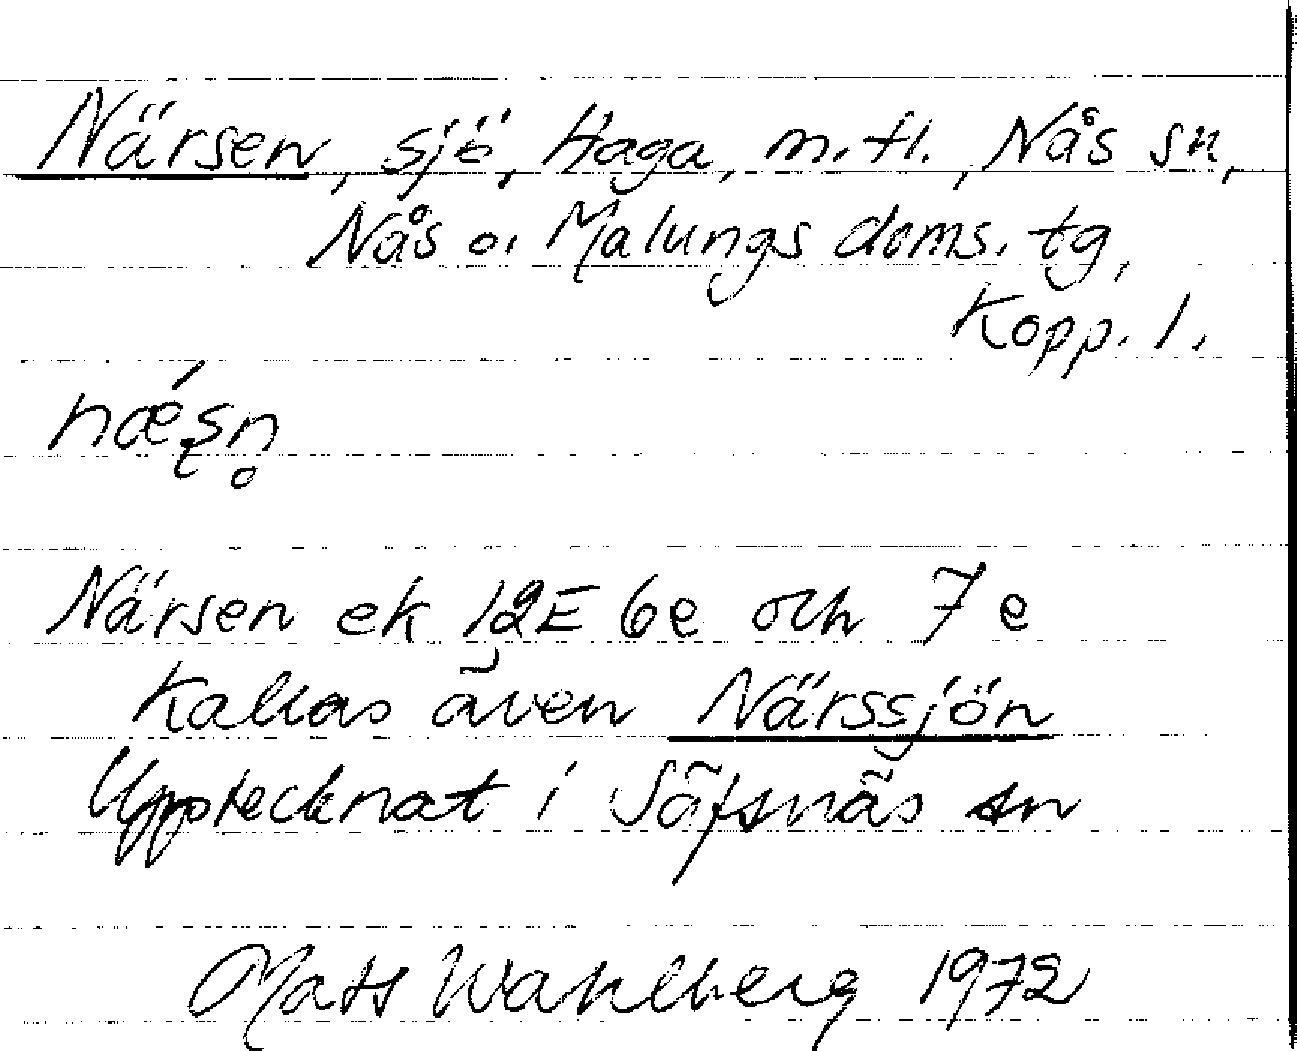 Närsen, sjö, Haga, m.fl., Nås sn,
Nås o. Malungs doms. tg,
Kopp. l.
næ´ʂn̥
Närsen ek 12E 6e och 7e
Kallas även Närssjön
Upptecknat i Säfsnäs sn
Mats Wahlberg 1972